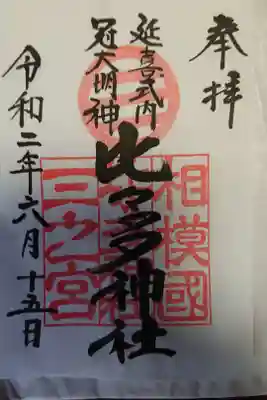 奉拝
延喜式内
冠大明神
比々多神社
相模國
三之宮
令和二年六月十五日